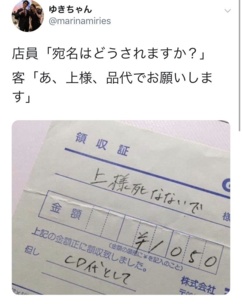 ゆきちゃん
@marinamiries
店員「宛名はどうされますか？」
客「あ、上様、品代でお願いしま
す」
領収証
上様死なないで
金額 ¥1050
上記の金額正に領収致しました。
但し CD代として
株式会社